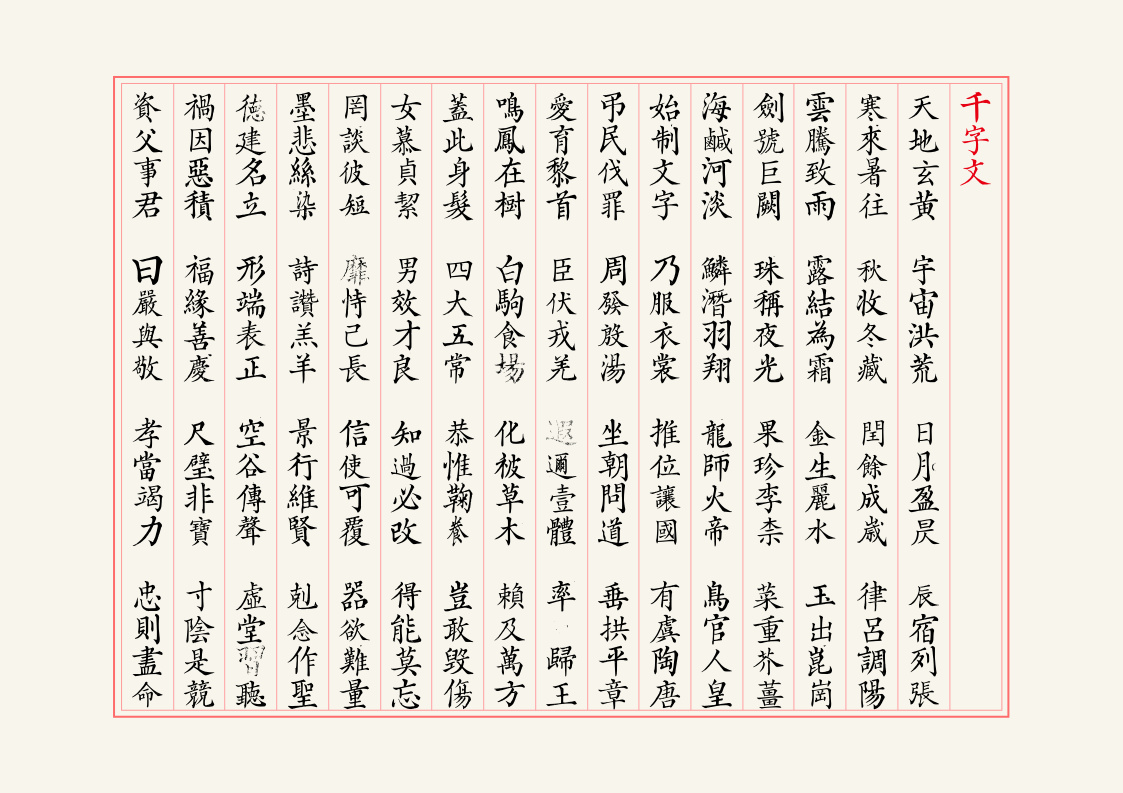 千字文
天地玄黃 宇宙洪荒 日月盈昃 辰宿列張
寒來暑往 秋收冬藏 閏餘成歲 律呂調陽
雲騰致雨 露結為霜 金生麗水 玉出崑崗
劍號巨闕 珠稱夜光 果珍李柰 菜重芥薑
海鹹河淡 鱗潛羽翔 龍師火帝 鳥官人皇
始制文字 乃服衣裳 推位讓國 有虞陶唐
吊民伐罪 周發殷湯 坐朝問道 垂拱平章
愛育黎首 臣伏戎羌 遐邇壹體 率歸王
鳴鳳在樹 白駒食場 化被草木 賴及萬方
蓋此身髮 四大五常 恭惟鞠養 豈敢毀傷
女慕貞絜 男效才良 知過必改 得能莫忘
罔談彼短 靡恃己長 信使可覆 器欲難量
墨悲絲染 詩讚羔羊 景行維賢 剋念作聖
德建名立 形端表正 空谷傳聲 虛堂習聽
禍因惡積 福緣善慶 尺璧非寶 寸陰是競
資父事君 曰嚴與敬 孝當竭力 忠則盡命